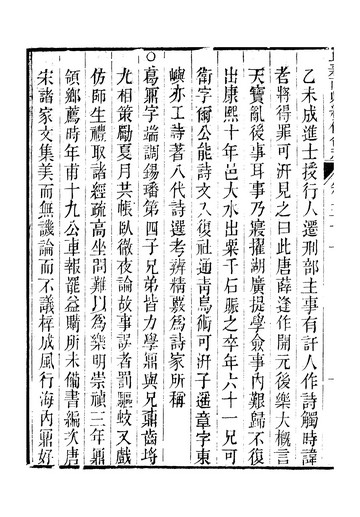 乙未成進士授行人遷刑部主事有訐人作詩觸時諱
者將得罪可汧見之曰此唐薛逢作開元後樂大槪言
天寶亂後事耳事乃寢擢湖廣提學僉事内艱歸不復
出康熙十年邑大水出粟千石賑之卒年六十一兄可
衛字爾公能詩文入復社通青烏術可汧子邁章字東
嶼亦工詩著八代詩選考辨精覈爲詩家所稱
○葛鼏字端調錫璠第四子兄弟皆力學鼏與兄鼐齒埓
尤相策勵夏月共帳臥微夜論故事誤者罰驅蚊又戲
仿師生禮取諸經疏高坐問難以爲樂明崇禎三年鼏
領鄉薦時年甫十九公車報罷益購所未備書編次唐
宋諸家文集美而無譏論而不議梓成風行海内鼏好